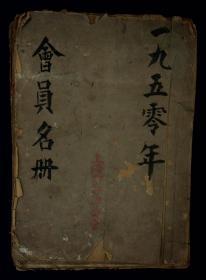 一九五零年
會員名册